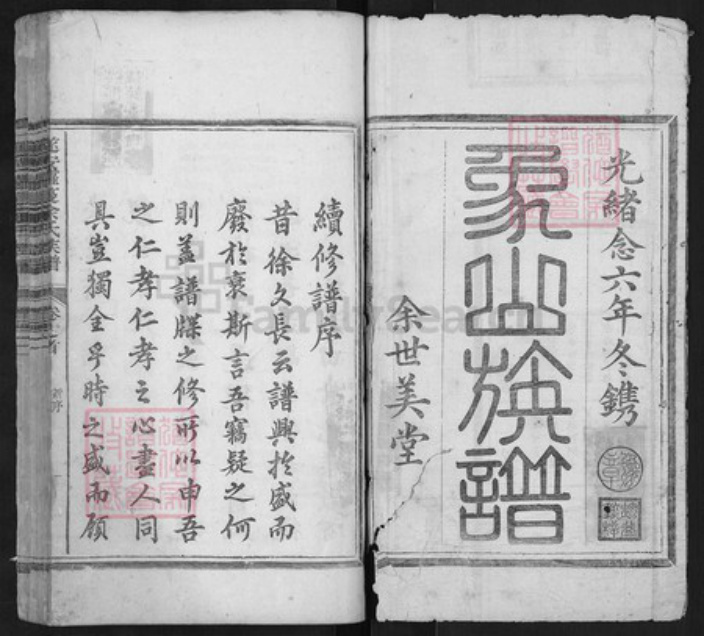 光緒念六年冬鐫
象山族譜
余世美堂
續修譜序
昔徐文長云譜興於盛而
廢於衰斯言吾竊疑之何
則蓋譜牒之修所以申吾
之仁孝仁孝之心盡人同
具豈獨全乎時之盛而顧
余氏族譜
FamilySearch